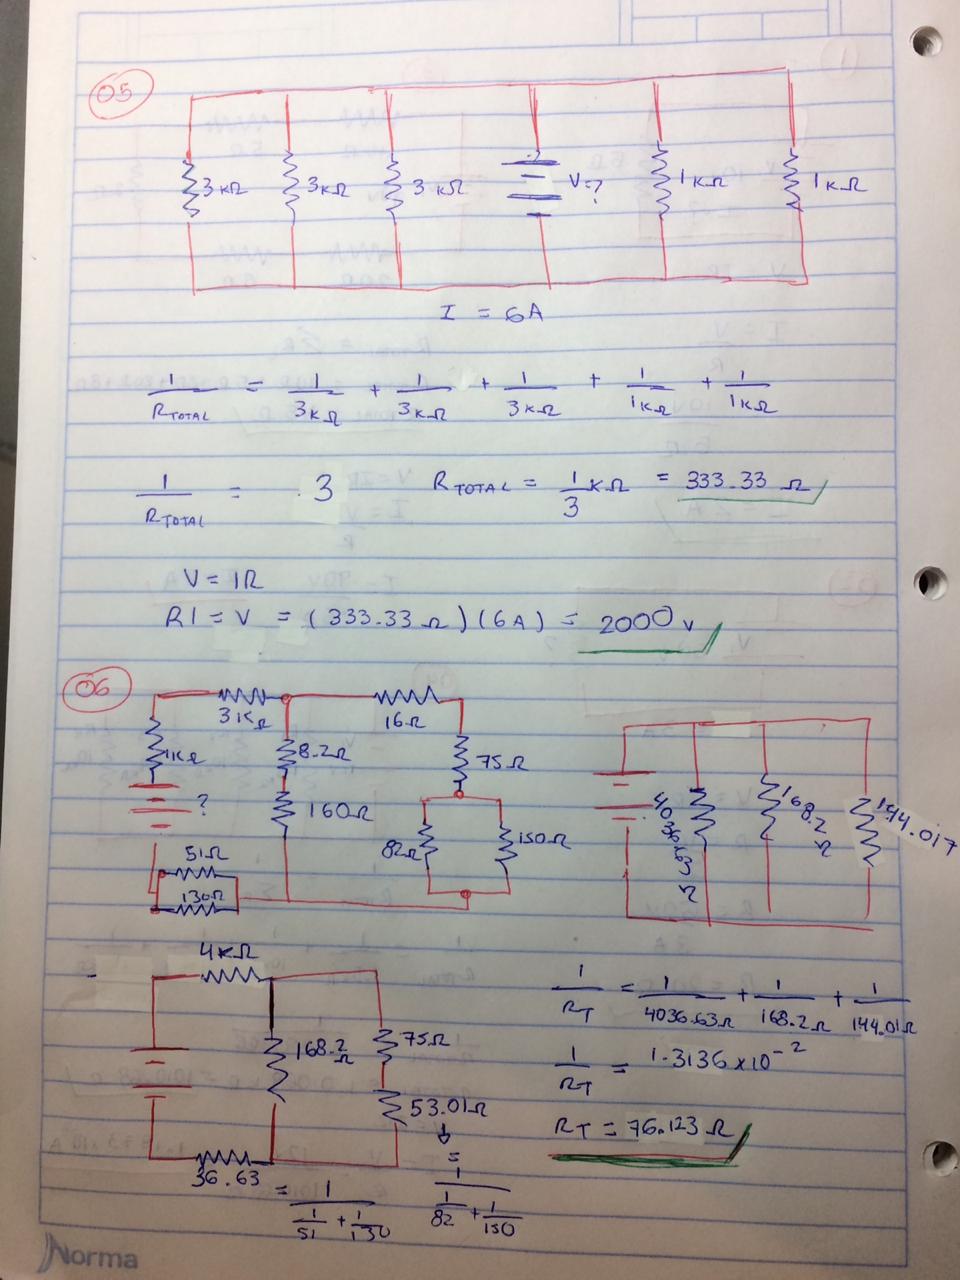 05
3 kΩ 3 kΩ 3 kΩ V=? 1 kΩ 1 kΩ
I = 6A
1/R TOTAL = 1/3 kΩ + 1/3 kΩ + 1/3 kΩ + 1/1 kΩ + 1/1 kΩ
1/R TOTAL = 3 R TOTAL = 1/3 kΩ = 333.33 Ω
V = IR
RI = V = (333.33 Ω)(6A) = 2000 v
06
3 kΩ 16 Ω
1 kΩ 8.2 Ω 75 Ω
? 160 Ω 82 Ω 150 Ω
51 Ω
130 Ω
4036.63 Ω 168.2 Ω 144.017
4 kΩ
168.2 Ω 75 Ω
53.01 Ω
36.63 = 1/(1/51 + 1/130)
= 1/(1/82 + 1/150)
1/RT = 1/4036.63 Ω + 1/168.2 Ω + 1/144.01 Ω
1/RT = 1.3136 x 10⁻²
RT = 76.123 Ω
Norma